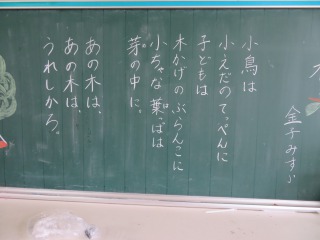 金子みすゞ
小鳥は
小えだのてっぺんに
子どもは
木かげのぶらんこに
小ちゃな葉っぱは
芽の中に。
あの木は、
あの木は、
うれしかろ。